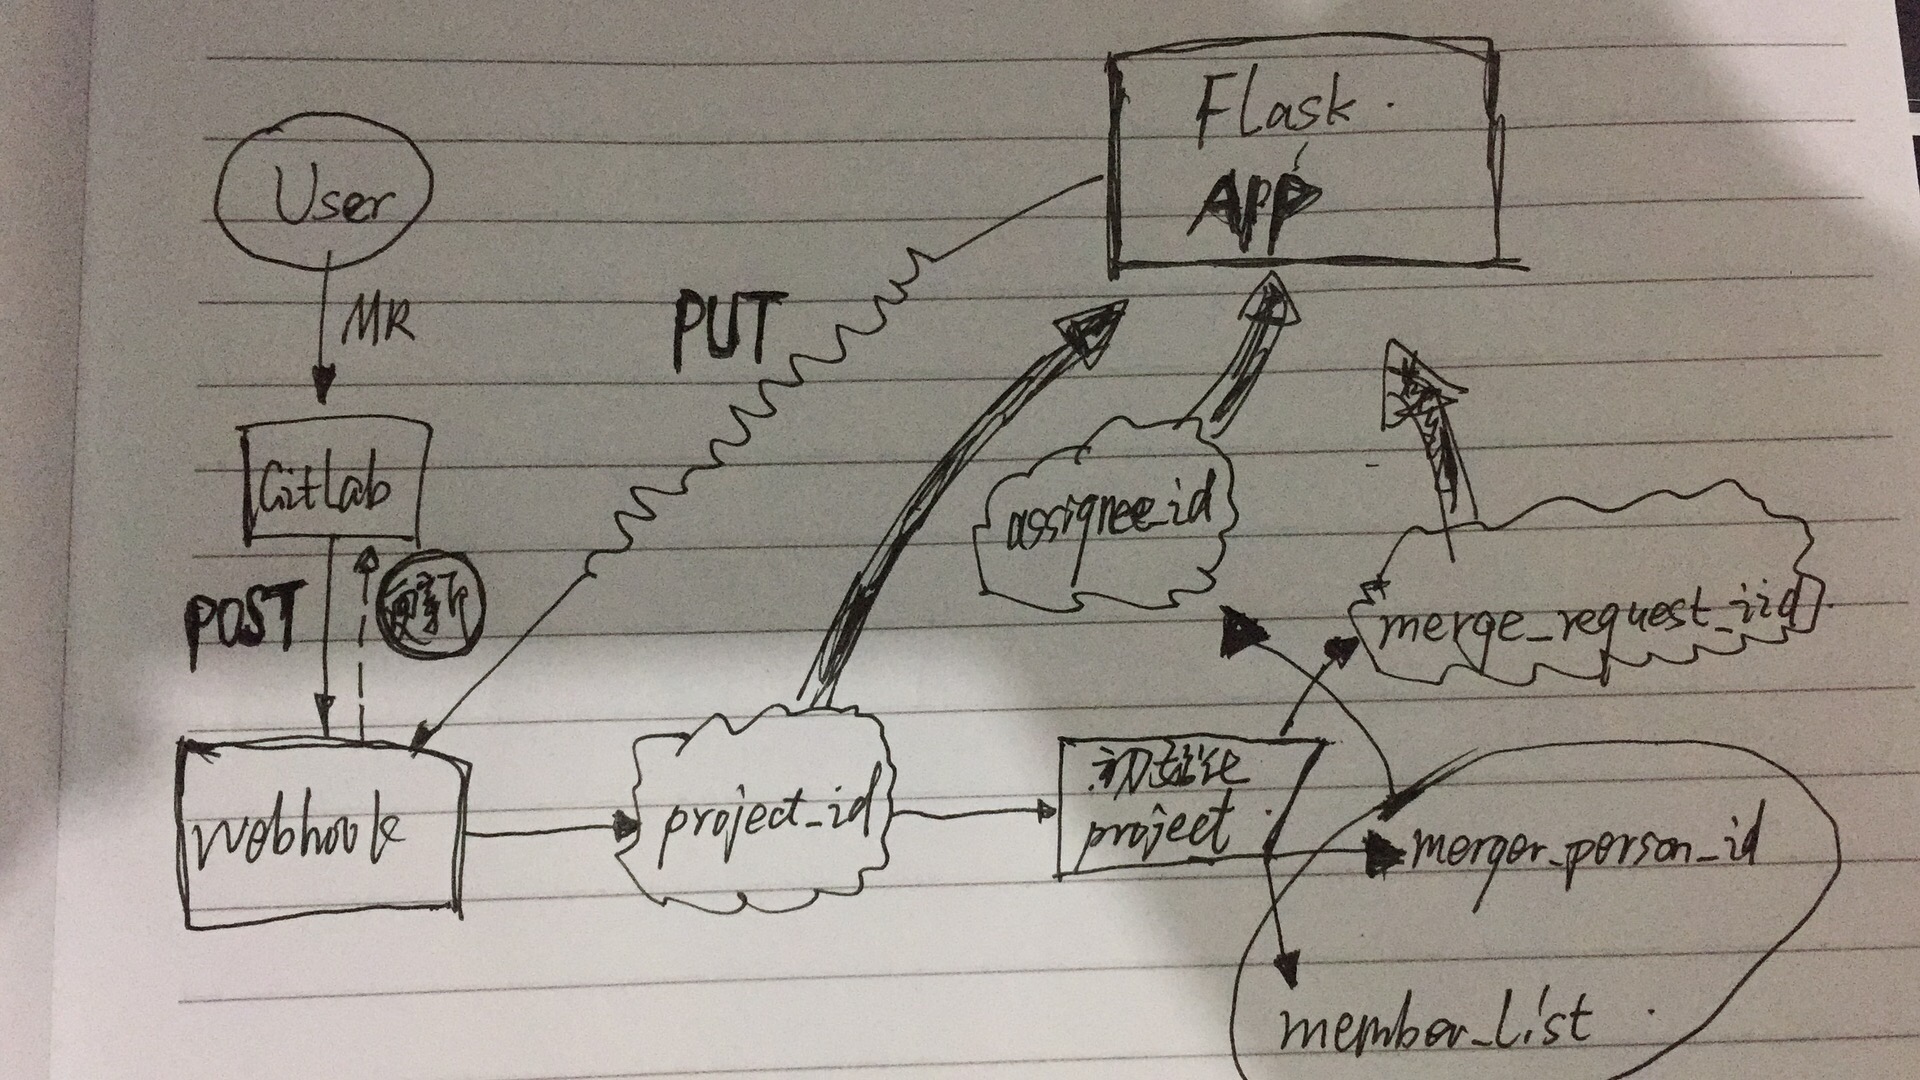 Flask
APP
User
MR
PUT
GitLab
assignee_id
POST
更新
merge_request_iid
Webhook
project_id
初始化
project
merger_person_id
member_list